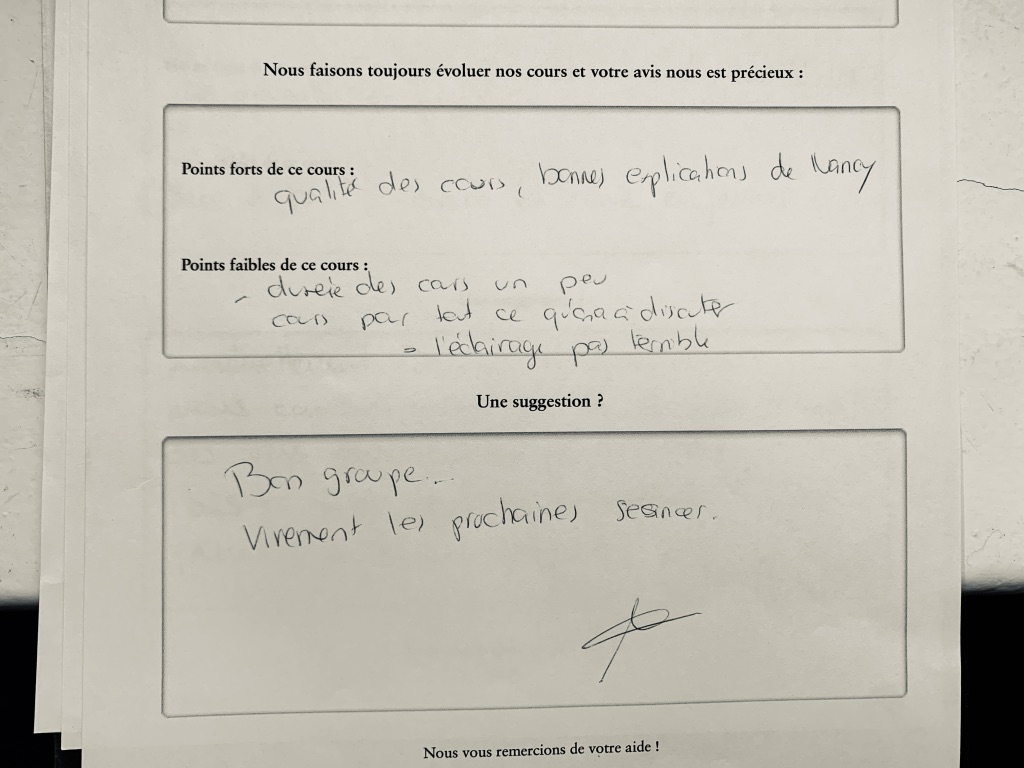 Nous faisons toujours évoluer nos cours et votre avis nous est précieux :
Points forts de ce cours :
qualité des cours, bonnes explications de Nancy
Points faibles de ce cours :
- dureie des cours un peu
cours pour tout ce qu'on a à discuter
- l'éclairage pas terrible
Une suggestion ?
Bon groupe...
Virement les prochaines sesinces.
Nous vous remercions de votre aide !